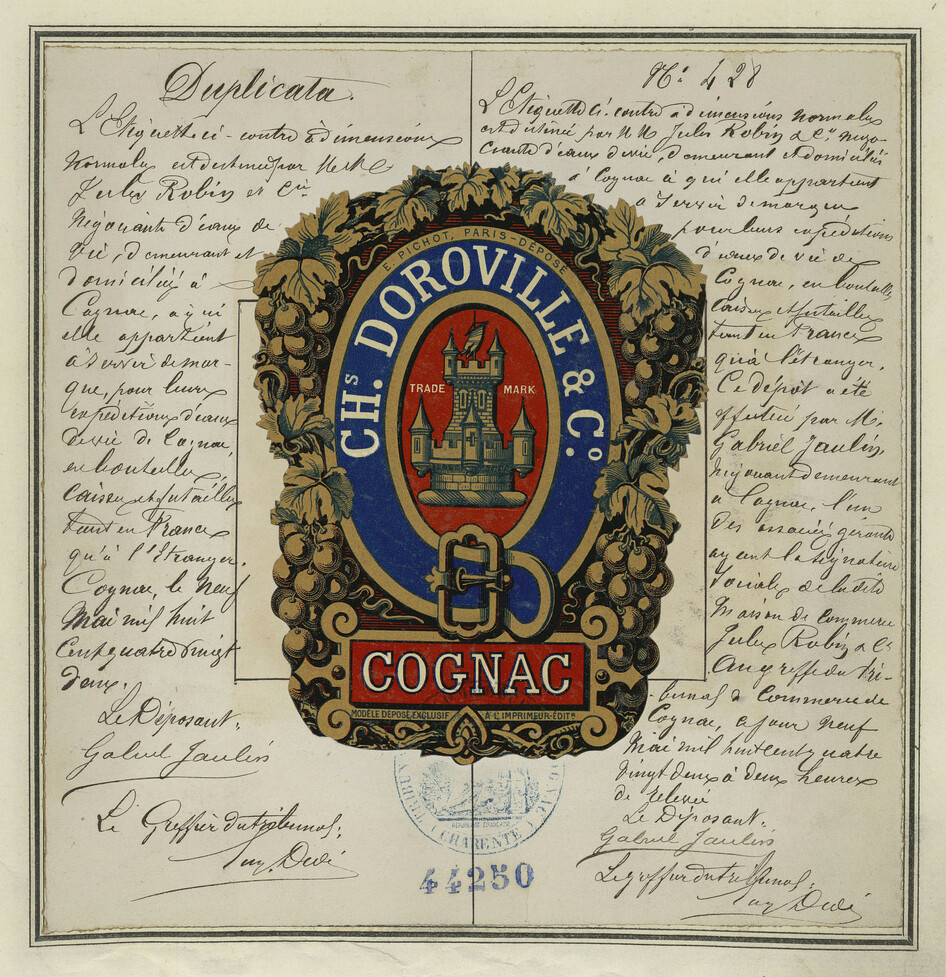 Duplicata.
L'Etiquette ci-contre à dimensions
Normales est destinée par M.M.
Jules Robin et Cie
Négociants d'eaux de
vie, demeurant et
domiciliés à
Cognac, à qui
elle appartient
à servir de mar-
que, pour leurs
expéditions d'eaux
de vie de Cognac,
en bouteilles
caisses et futailles
tant en France
qu'à l'Etranger.
Cognac, le neuf
Mai mil huit
cent quatre vingt
deux.
Le Déposant.
Gabriel Jaulin
Le Greffier du tribunal.
No 428
L'Etiquette ci-contre à dimensions normales
est destinée par MM Jules Robin & Cie négo-
ciants d'eaux de vie, demeurant et domiciliés
à Cognac à qui elle appartient
à servir de marque
pour leurs expéditions
d'eaux de vie de
Cognac, en bouteilles
caisses et futailles
tant en France
qu'à l'étranger.
Ce dépôt a été
effectué par M.
Gabriel Jaulin,
négociant demeurant
à Cognac, l'un
des associés gérants
ayant la signature
sociale de la dite
Maison de commerce
Jules Robin & Cie
Au greffe du Tri-
bunal de Commerce de
Cognac, ce jour neuf
Mai mil huit cent quatre
vingt deux à deux heures
de relevée
Le Déposant.
Gabriel Jaulin
Le greffier du tribunal.
E. PICHOT, PARIS-DÉPOSÉ
CH.S DOROVILLE & C.O
TRADE MARK
COGNAC
MODÈLE DÉPOSÉ, EXCLUSIF À L'IMPRIMEUR-ÉDIT.R
CHARENTE
44250